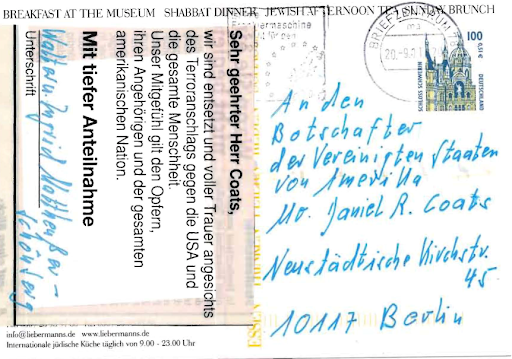 BREAKFAST AT THE MUSEUM SHABBAT DINNER JEWISH AFTERNOON TEA SUNDAY BRUNCH
Sehr geehrter Herr Coats,
wir sind entsetzt und voller Trauer angesichts
des Terroranschlags gegen die USA und
die gesamte Menschheit.
Unser Mitgefühl gilt den Opfern,
ihren Angehörigen und der gesamten
amerikanischen Nation.
Mit tiefer Anteilnahme
Unterschrift
BRIEFZENTRUM
100
0,51€
DEUTSCHLAND
An den
Botschafter
der Vereinigten Staaten
von Amerika
Mr. Daniel R. Coats
Neustädtische Kirchstr.
45
10117 Berlin
info@liebermanns.de www.liebermanns.de
Internationale jüdische Küche täglich von 9.00 - 23.00 Uhr